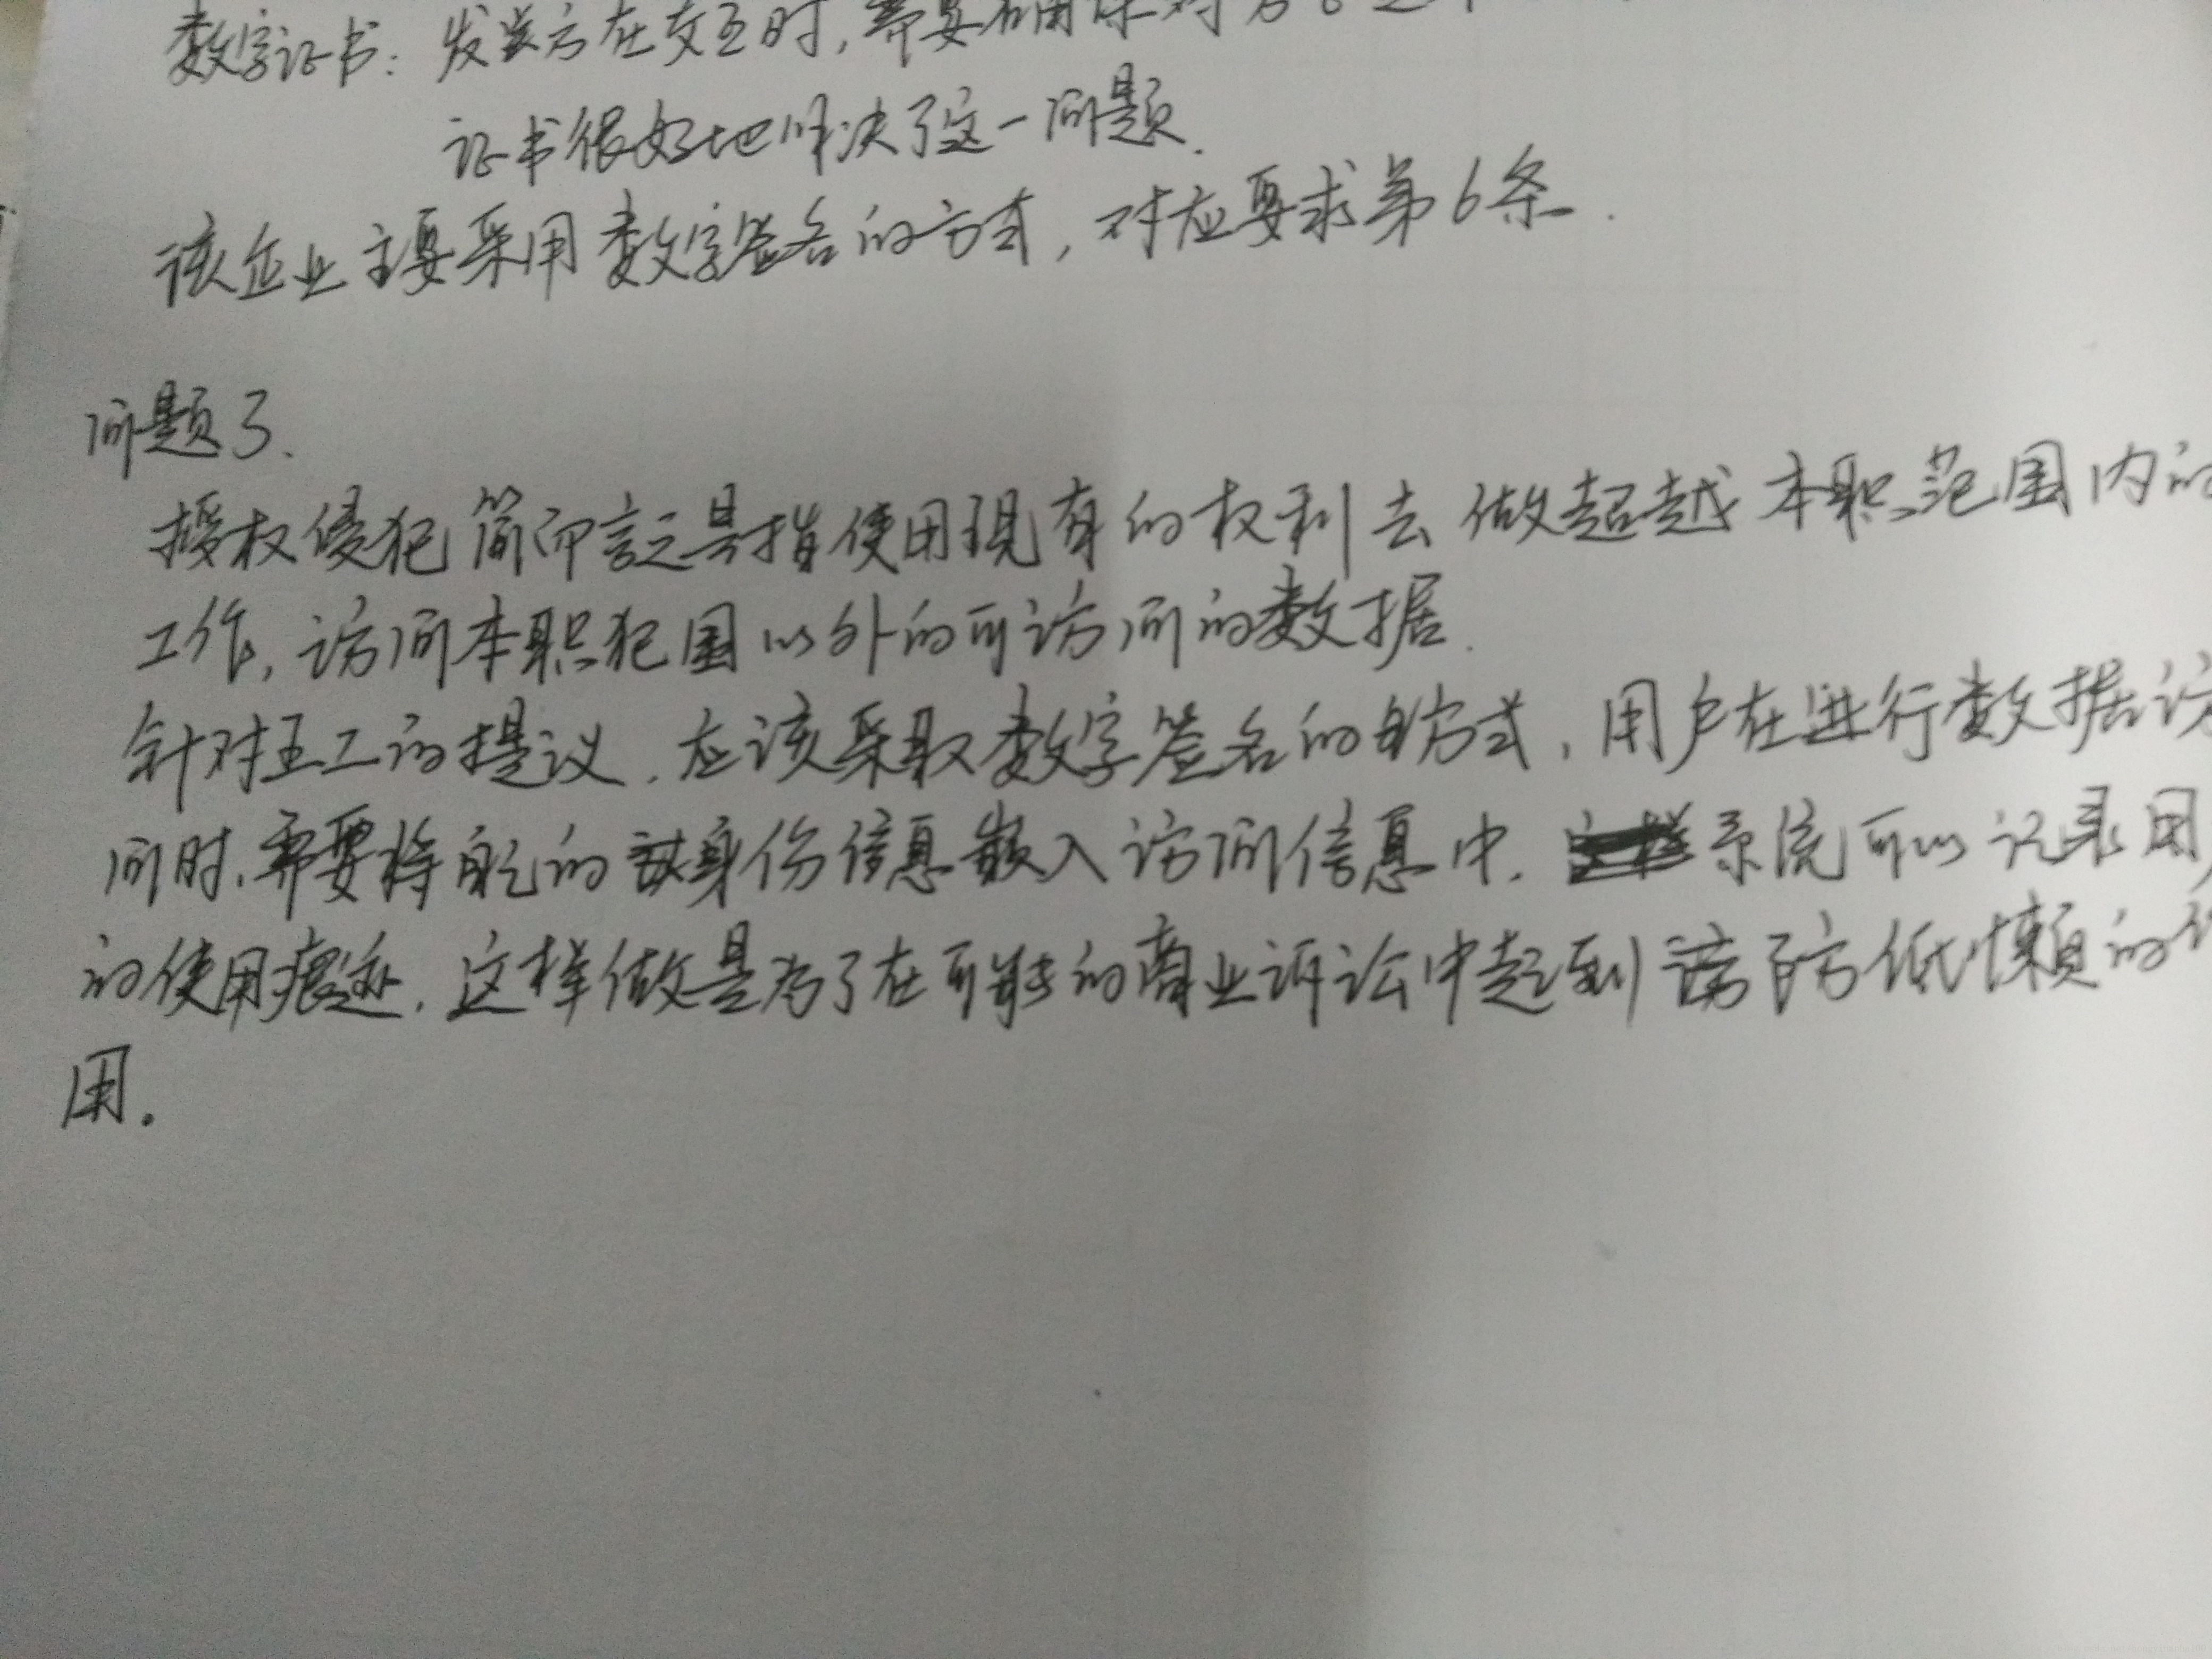 数字证书：发送方在交互时，需要确保对方
证书很好地解决了这一问题.
该企业主要采用数字签名的方式，对应要求第6条.
问题3.
授权侵犯简而言之是指使用现有的权利去做超越本职范围内的
工作，访问本职犯围以外的可访问的数据.
针对王工的提议，应该采取数字签名的方式，用户在进行数据访
问时，需要将自己的身份信息嵌入访问信息中. 系统可以记录用户
的使用痕迹，这样做是为了在可能的商业诉讼中起到预防抵懒的作
用.